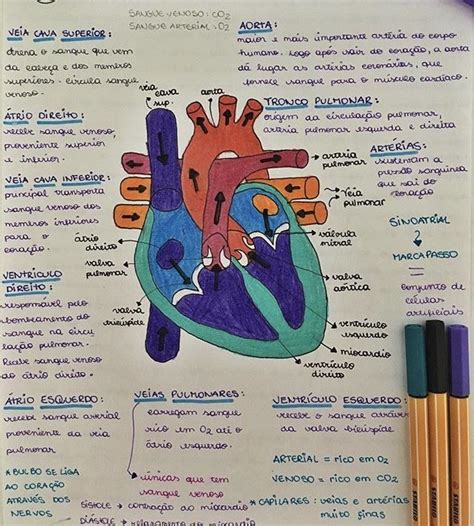 SANGUE VENOSO : CO2
SANGUE ARTERIAL : O2
VEIA CAVA SUPERIOR:
drena o sangue que vem
da cabeça e dos membros
superiores - circula sangue
venoso.
ÁTRIO DIREITO:
recebe sangue venoso,
proveniente superior
e inferior.
VEIA CAVA INFERIOR:
principal transporta
sangue venoso dos
membros inferiores
para o
coração.
VENTRÍCULO
DIREITO:
responsável pelo
bombeamento do
sangue na circu
lação pulmonar.
Recebe sangue venoso
do átrio direito.
AORTA:
maior e mais importante artéria do corpo
humano. Logo após sair do coração, a aorta
dá lugar as artérias coronárias, que
fornece sangue para o músculo cardíaco.
TRONCO PULMONAR:
origem da circulação pulmonar,
artéria pulmonar esquerda e direita
ARTERIAS:
sustentam a
pressão sanguínea
que sai do
coração
SINOATRIAL
MARCAPASSO
=
conjunto de
células
artificiais
via
cava
sup.
aorta
artéria
pulmonar
Veia
pulmonar
válvula
mitral
valva
aórtica
ventrículo
esquerdo
miocardio
ventrículo
direito
átrio
direito
valva
pulmonar
valva
tricúspide
ÁTRIO ESQUERDO:
recebe sangue arterial
proveniente da veia
pulmonar
* BULBO SE LIGA
AO CORAÇÃO
ATRAVÉS DOS
NERVOS
VEIAS PULMONARES:
carregam sangue
rico em O2 até o
átrio esquerdo.
únicas que tem
sangue venoso
SÍSTOLE → contração do miocárdio
DIÁSTOLE → relaxamento do miocárdio
VENTRÍCULO ESQUERDO:
recebe o sangue
da valva bicúspide
ARTERIAL = rico em O2
VENOSO = rico em CO2
* CAPILARES : veias e artérias
muito finas
STABILO
STABILO
STABILO